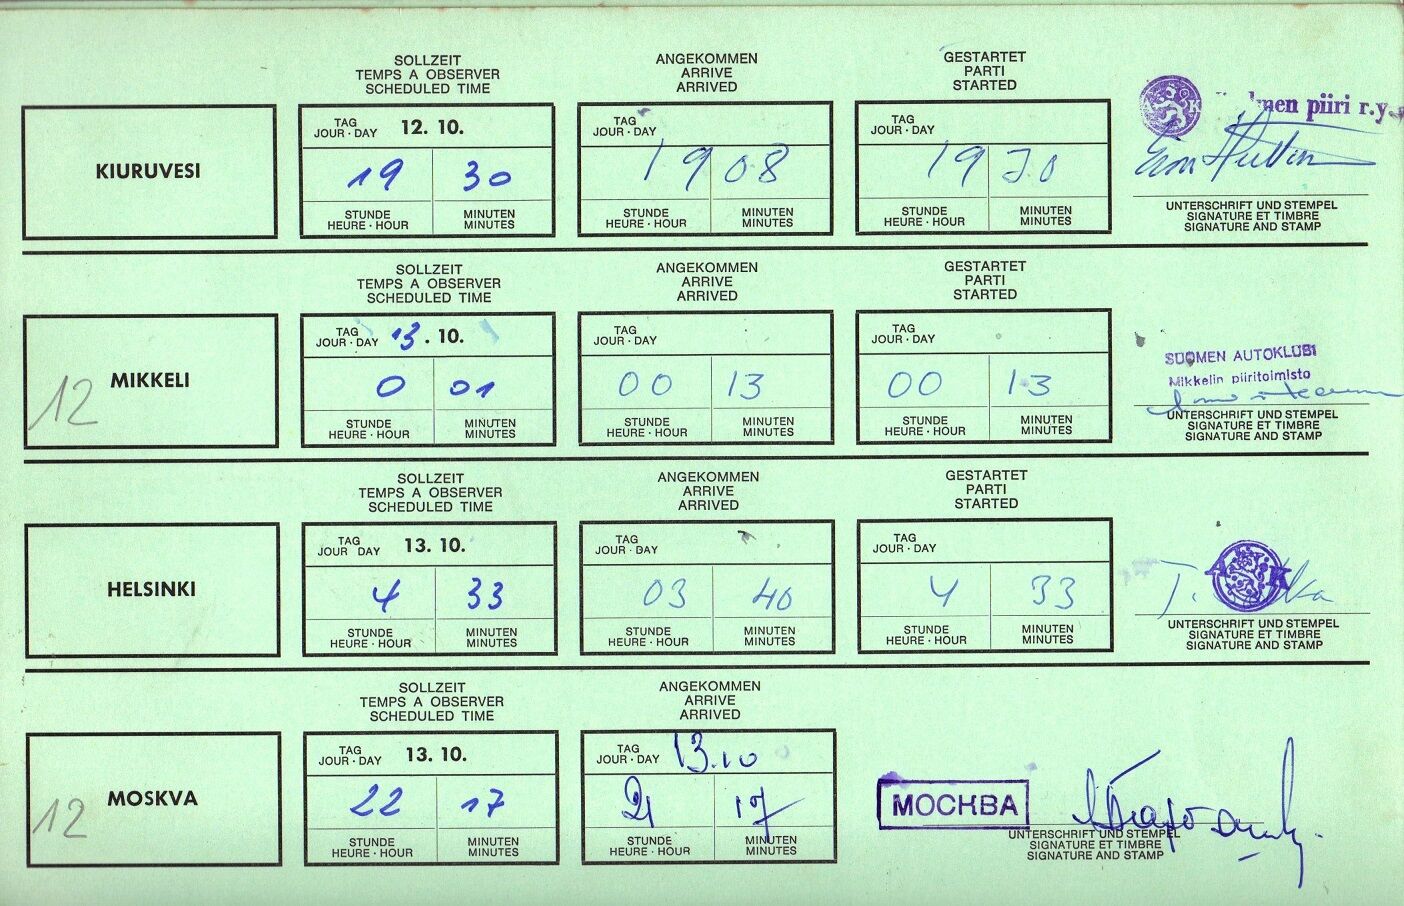 SOLLZEIT
TEMPS A OBSERVER
SCHEDULED TIME
ANGEKOMMEN
ARRIVE
ARRIVED
GESTARTET
PARTI
STARTED
KIURUVESI
TAG
JOUR · DAY 12. 10.
19 30
STUNDE
HEURE · HOUR
MINUTEN
MINUTES
TAG
JOUR · DAY
19 08
STUNDE
HEURE · HOUR
MINUTEN
MINUTES
TAG
JOUR · DAY
19 30
STUNDE
HEURE · HOUR
MINUTEN
MINUTES
piiri r.y.
UNTERSCHRIFT UND STEMPEL
SIGNATURE ET TIMBRE
SIGNATURE AND STAMP
SOLLZEIT
TEMPS A OBSERVER
SCHEDULED TIME
ANGEKOMMEN
ARRIVE
ARRIVED
GESTARTET
PARTI
STARTED
12 MIKKELI
TAG
JOUR · DAY 13. 10.
0 01
STUNDE
HEURE · HOUR
MINUTEN
MINUTES
TAG
JOUR · DAY
00 13
STUNDE
HEURE · HOUR
MINUTEN
MINUTES
TAG
JOUR · DAY
00 13
STUNDE
HEURE · HOUR
MINUTEN
MINUTES
SUOMEN AUTOKLUBI
Mikkelin piiritoimisto
UNTERSCHRIFT UND STEMPEL
SIGNATURE ET TIMBRE
SIGNATURE AND STAMP
SOLLZEIT
TEMPS A OBSERVER
SCHEDULED TIME
ANGEKOMMEN
ARRIVE
ARRIVED
GESTARTET
PARTI
STARTED
HELSINKI
TAG
JOUR DAY 13. 10.
4 33
STUNDE
HEURE · HOUR
MINUTEN
MINUTES
TAG
JOUR · DAY
03 40
STUNDE
HEURE · HOUR
MINUTEN
MINUTES
TAG
JOUR · DAY
4 33
STUNDE
HEURE · HOUR
MINUTEN
MINUTES
A K
UNTERSCHRIFT UND STEMPEL
SIGNATURE ET TIMBRE
SIGNATURE AND STAMP
SOLLZEIT
TEMPS A OBSERVER
SCHEDULED TIME
ANGEKOMMEN
ARRIVE
ARRIVED
12 MOSKVA
TAG
JOUR · DAY 13. 10.
22 17
STUNDE
HEURE · HOUR
MINUTEN
MINUTES
TAG
JOUR · DAY 13.10
21 17
STUNDE
HEURE · HOUR
MINUTEN
MINUTES
МОСКВА
UNTERSCHRIFT UND STEMPEL
SIGNATURE ET TIMBRE
SIGNATURE AND STAMP